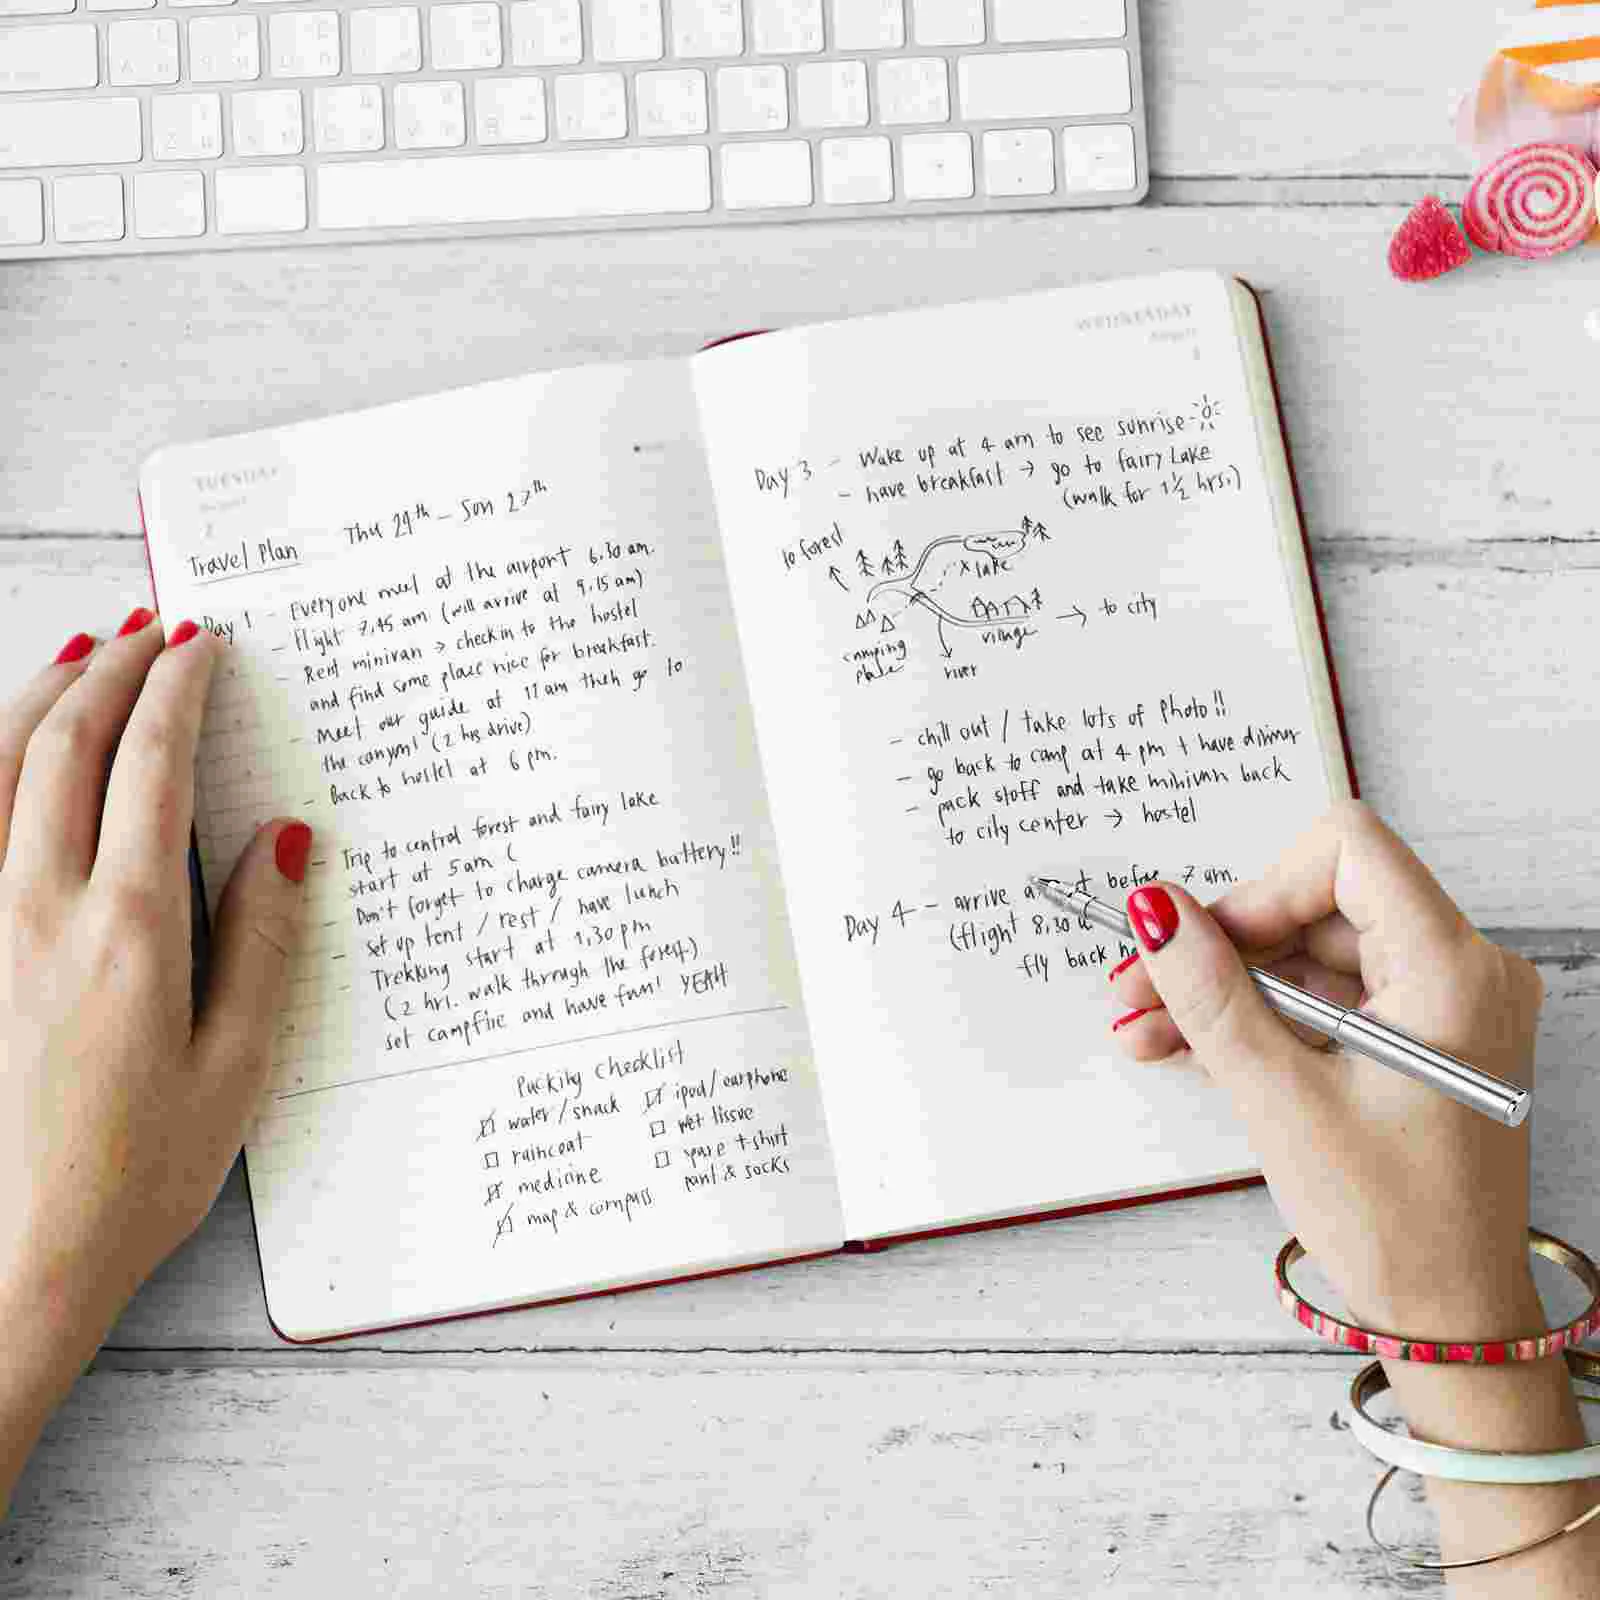 TUESDAY
2
Travel Plan Thu 24th - Sun 27th
Day 1 - Everyone meet at the airport 6.30 am.
- flight 7.45 am (will arrive at 9.15 am)
- Rent minivan → check in to the hostel
and find some place nice for breakfast.
- meet our guide at 11 am then go to
the canyon! (2 hrs drive)
- Back to hostel at 6 pm.
- Trip to central forest and fairy lake
start at 5 am (
Don't forget to charge camera battery!!
- set up tent / rest / have lunch
- Trekking start at 1,30 pm
(2 hrs. walk through the forest)
set campfire and have fun! YEAH
Packing Checklist
water / snack
raincoat
medicine
map & compass
ipod / earphone
wet tissue
spare t-shirt
pant & socks
WEDNESDAY
Day 3 - Wake up at 4 am to see sunrise
- have breakfast → go to fairy Lake
(walk for 1½ hrs.)
to forest
x lake
camping
place
village
→ to city
river
- chill out / take lots of photo!!
- go back to camp at 4 pm + have dinner
- pack stuff and take minivan back
to city center → hostel
Day 4 - arrive before 7 am.
(flight 8.30
fly back